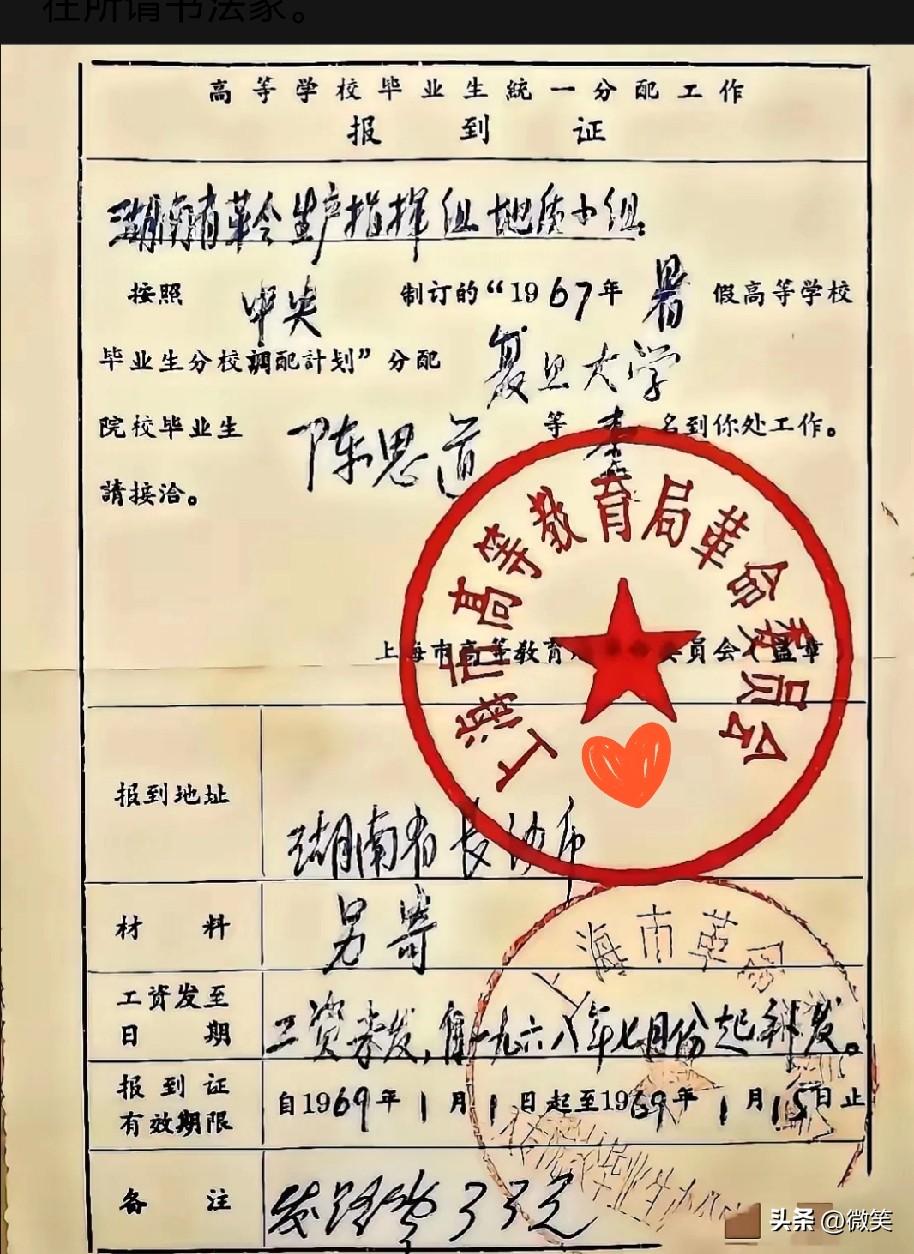 在所谓书法家。
高等学校毕业生統一分配工作
报到证
湖南省革会生产指挥组地质小组
按照 中央 制订的“1967年 暑 假高等学校
毕业生分校調配計划”分配 复旦大学
院校毕业生 陈思道 等 名到你处工作。
請接洽。
上海市高等教育局革命委員会
上海市高等教育 員会（盖章
报到地址 湖南省长沙市
材料 另寄
工资发至日期 工资未发，自一九六八年七月份起补发。
报到证有效期限 自1969年1月1日起至1969年1月15日止
备注 发路费33元
上海市革命
头条 @微笑